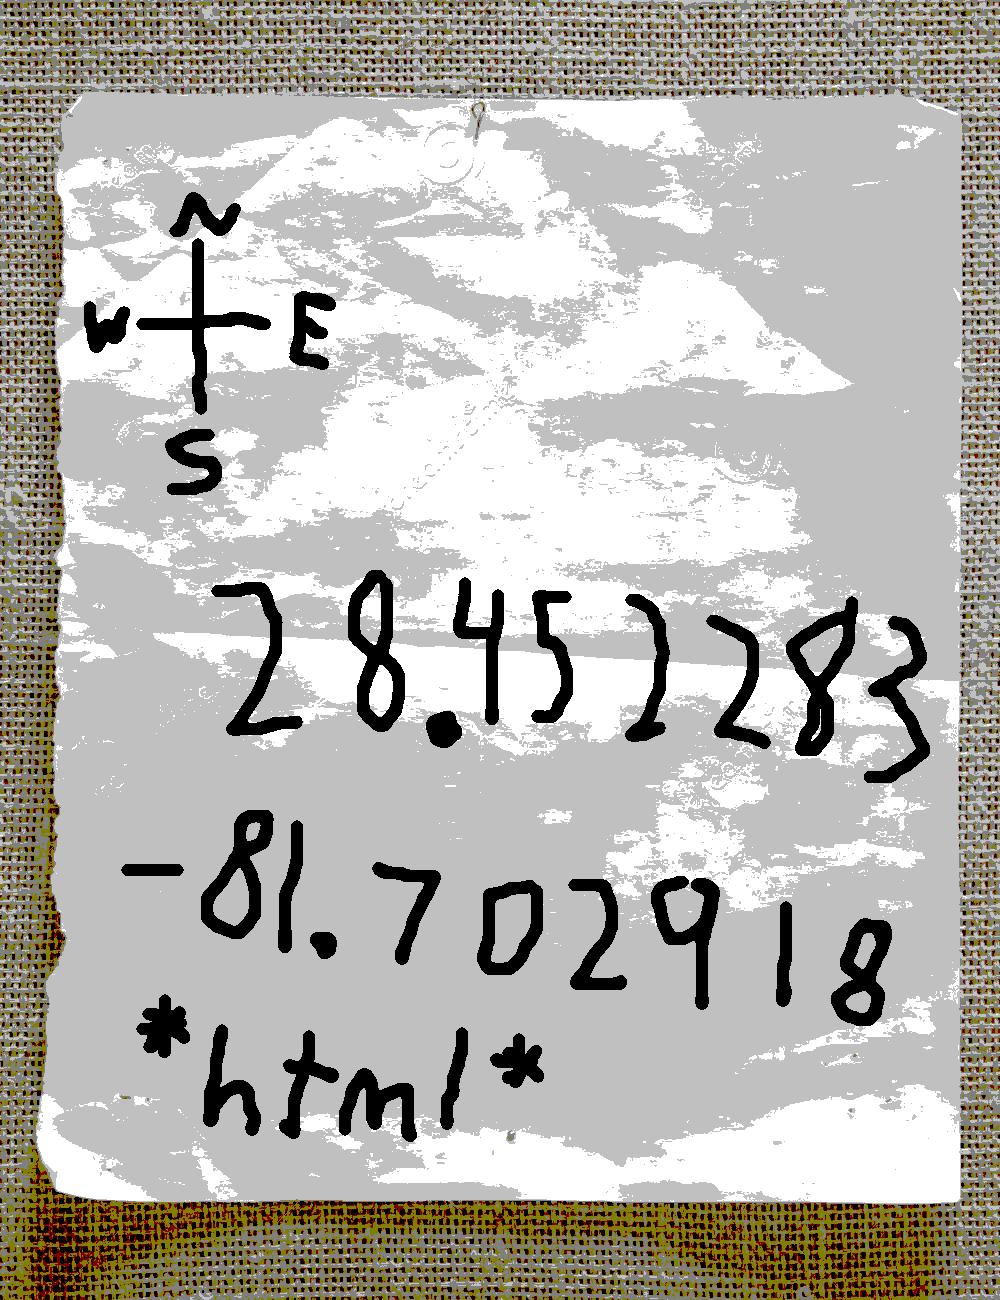 N
W E
S
28.4522283
-81.702918
*html*